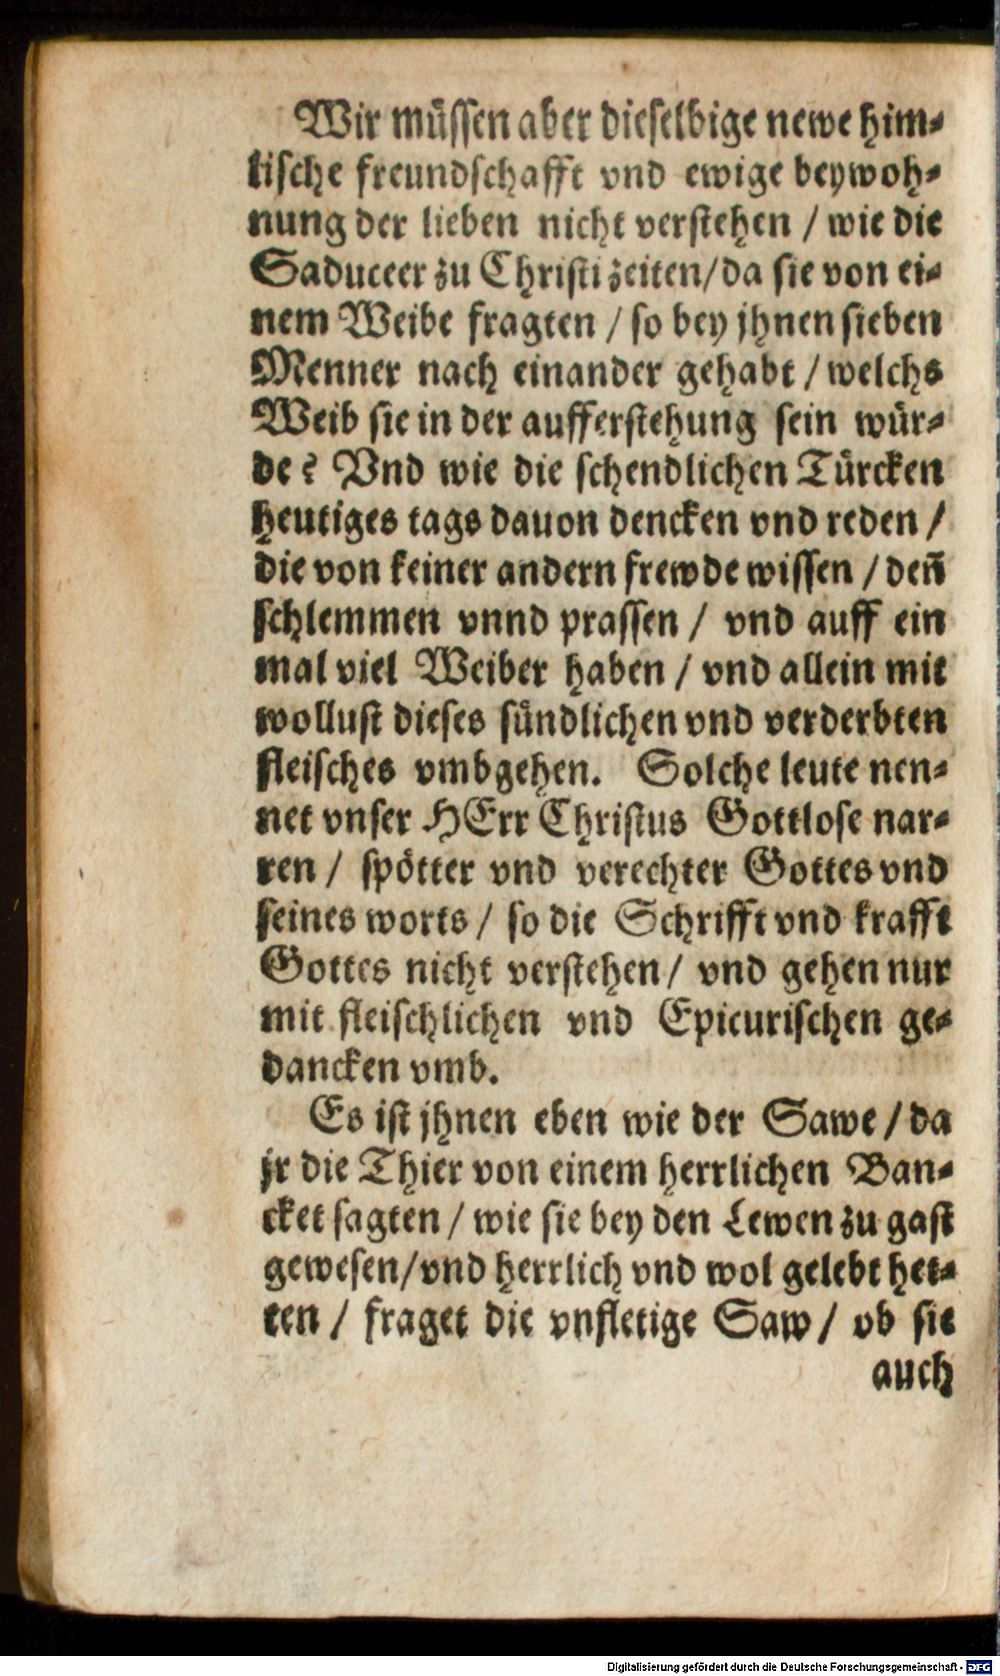 Wir müssen aber dieselbige newe him-
lische freundschafft vnd ewige beywoh-
nung der lieben nicht verstehen / wie die
Saduceer zu Christi zeiten/da sie von ei-
nem Weibe fragten / so bey jhnen sieben
Menner nach einander gehabt / welchs
Weib sie in der aufferstehung sein wür-
de? Vnd wie die schendlichen Türcken
heutiges tags dauon dencken vnd reden /
die von keiner andern frewde wissen / deñ
schlemmen vnnd prassen / vnd auff ein
mal viel Weiber haben / vnd allein mit
wollust dieses sündlichen vnd verderbten
fleisches vmbgehen. Solche leute nen-
net vnser HErr Christus Gottlose nar-
ren / spötter vnd verechter Gottes vnd
seines worts / so die Schrifft vnd krafft
Gottes nicht verstehen/ vnd gehen nur
mit fleischlichen vnd Epicurischen ge-
dancken vmb.
Es ist jhnen eben wie der Sawe / da
jr die Thier von einem herrlichen Ban-
cket sagten / wie sie bey den Lewen zu gast
gewesen/vnd herrlich vnd wol gelebt het-
ten / fraget die vnfletige Saw / ob sie
auch
Digitalisierung gefördert durch die Deutsche Forschungsgemeinschaft - DFG